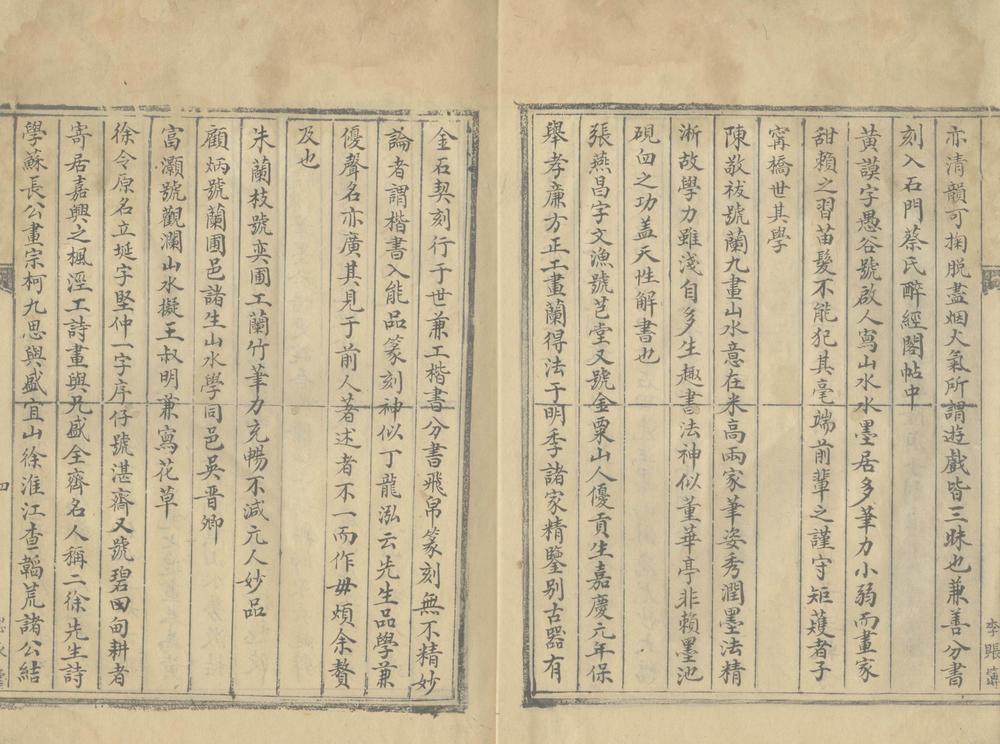 亦清韻可掬脫盡烟火氣所謂遊戲皆三昧也兼善分書
刻入石門蔡氏醉經閣帖中
黃謨字愚谷號啟人寫山水水墨居多筆力小弱而畫家
甜賴之習苗髮不能犯其毫端前輩之謹守矩矱者子
寗橋世其學
陳敬祓號蘭九畫山水意在米高兩家筆姿秀潤墨法精
淅故學力雖淺自多生趣書法神似董華亭非賴墨池
硯臼之功盖天性解書也
張燕昌字文漁號芑堂又號金粟山人優貢生嘉慶元年保
舉孝廉方正工畫蘭得法于明季諸家精鑒别古器有
金石契刻行于世兼工楷書分書飛帛篆刻無不精妙
論者謂楷書入能品篆刻神似丁龍泓云先生品學兼
優聲名亦廣其見于前人著述者不一而作毋煩余贅
及也
朱蘭枝號奕圃工蘭竹筆力充暢不減元人妙品
顧炳號蘭圃邑諸生山水學同邑吳晋卿
富灝號觀瀾山水擬王叔明兼寫花草
徐令原名立埏字堅仲一字序仔號湛齋又號碧田甸耕者
寄居嘉興之楓涇工詩畫與兄盛全齊名人稱二徐先生詩
學蘇長公畫宗柯九思與盛宜山徐淮江查韜荒諸公結
四